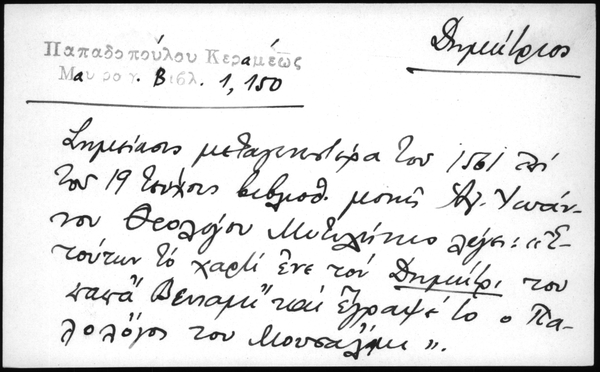 Παπαδοπούλου Κεραμέως
Μαυρογ. Βιβλ. 1, 150
Δημήτριος
Σημείωσις μεταγενεστέρα του 1561 επί
του 19 τεύχους βιβλιοθ. μονής Αγ. Ιωάν-
νου Θεολόγου Μυτιλήνης λέγει: «Ε-
τούτων το χαρτί ένε του Δημήτρι του
παπά Βενιαμι και έγραψέ το ο Πα-
λολόγος του Μουσαλίμι».